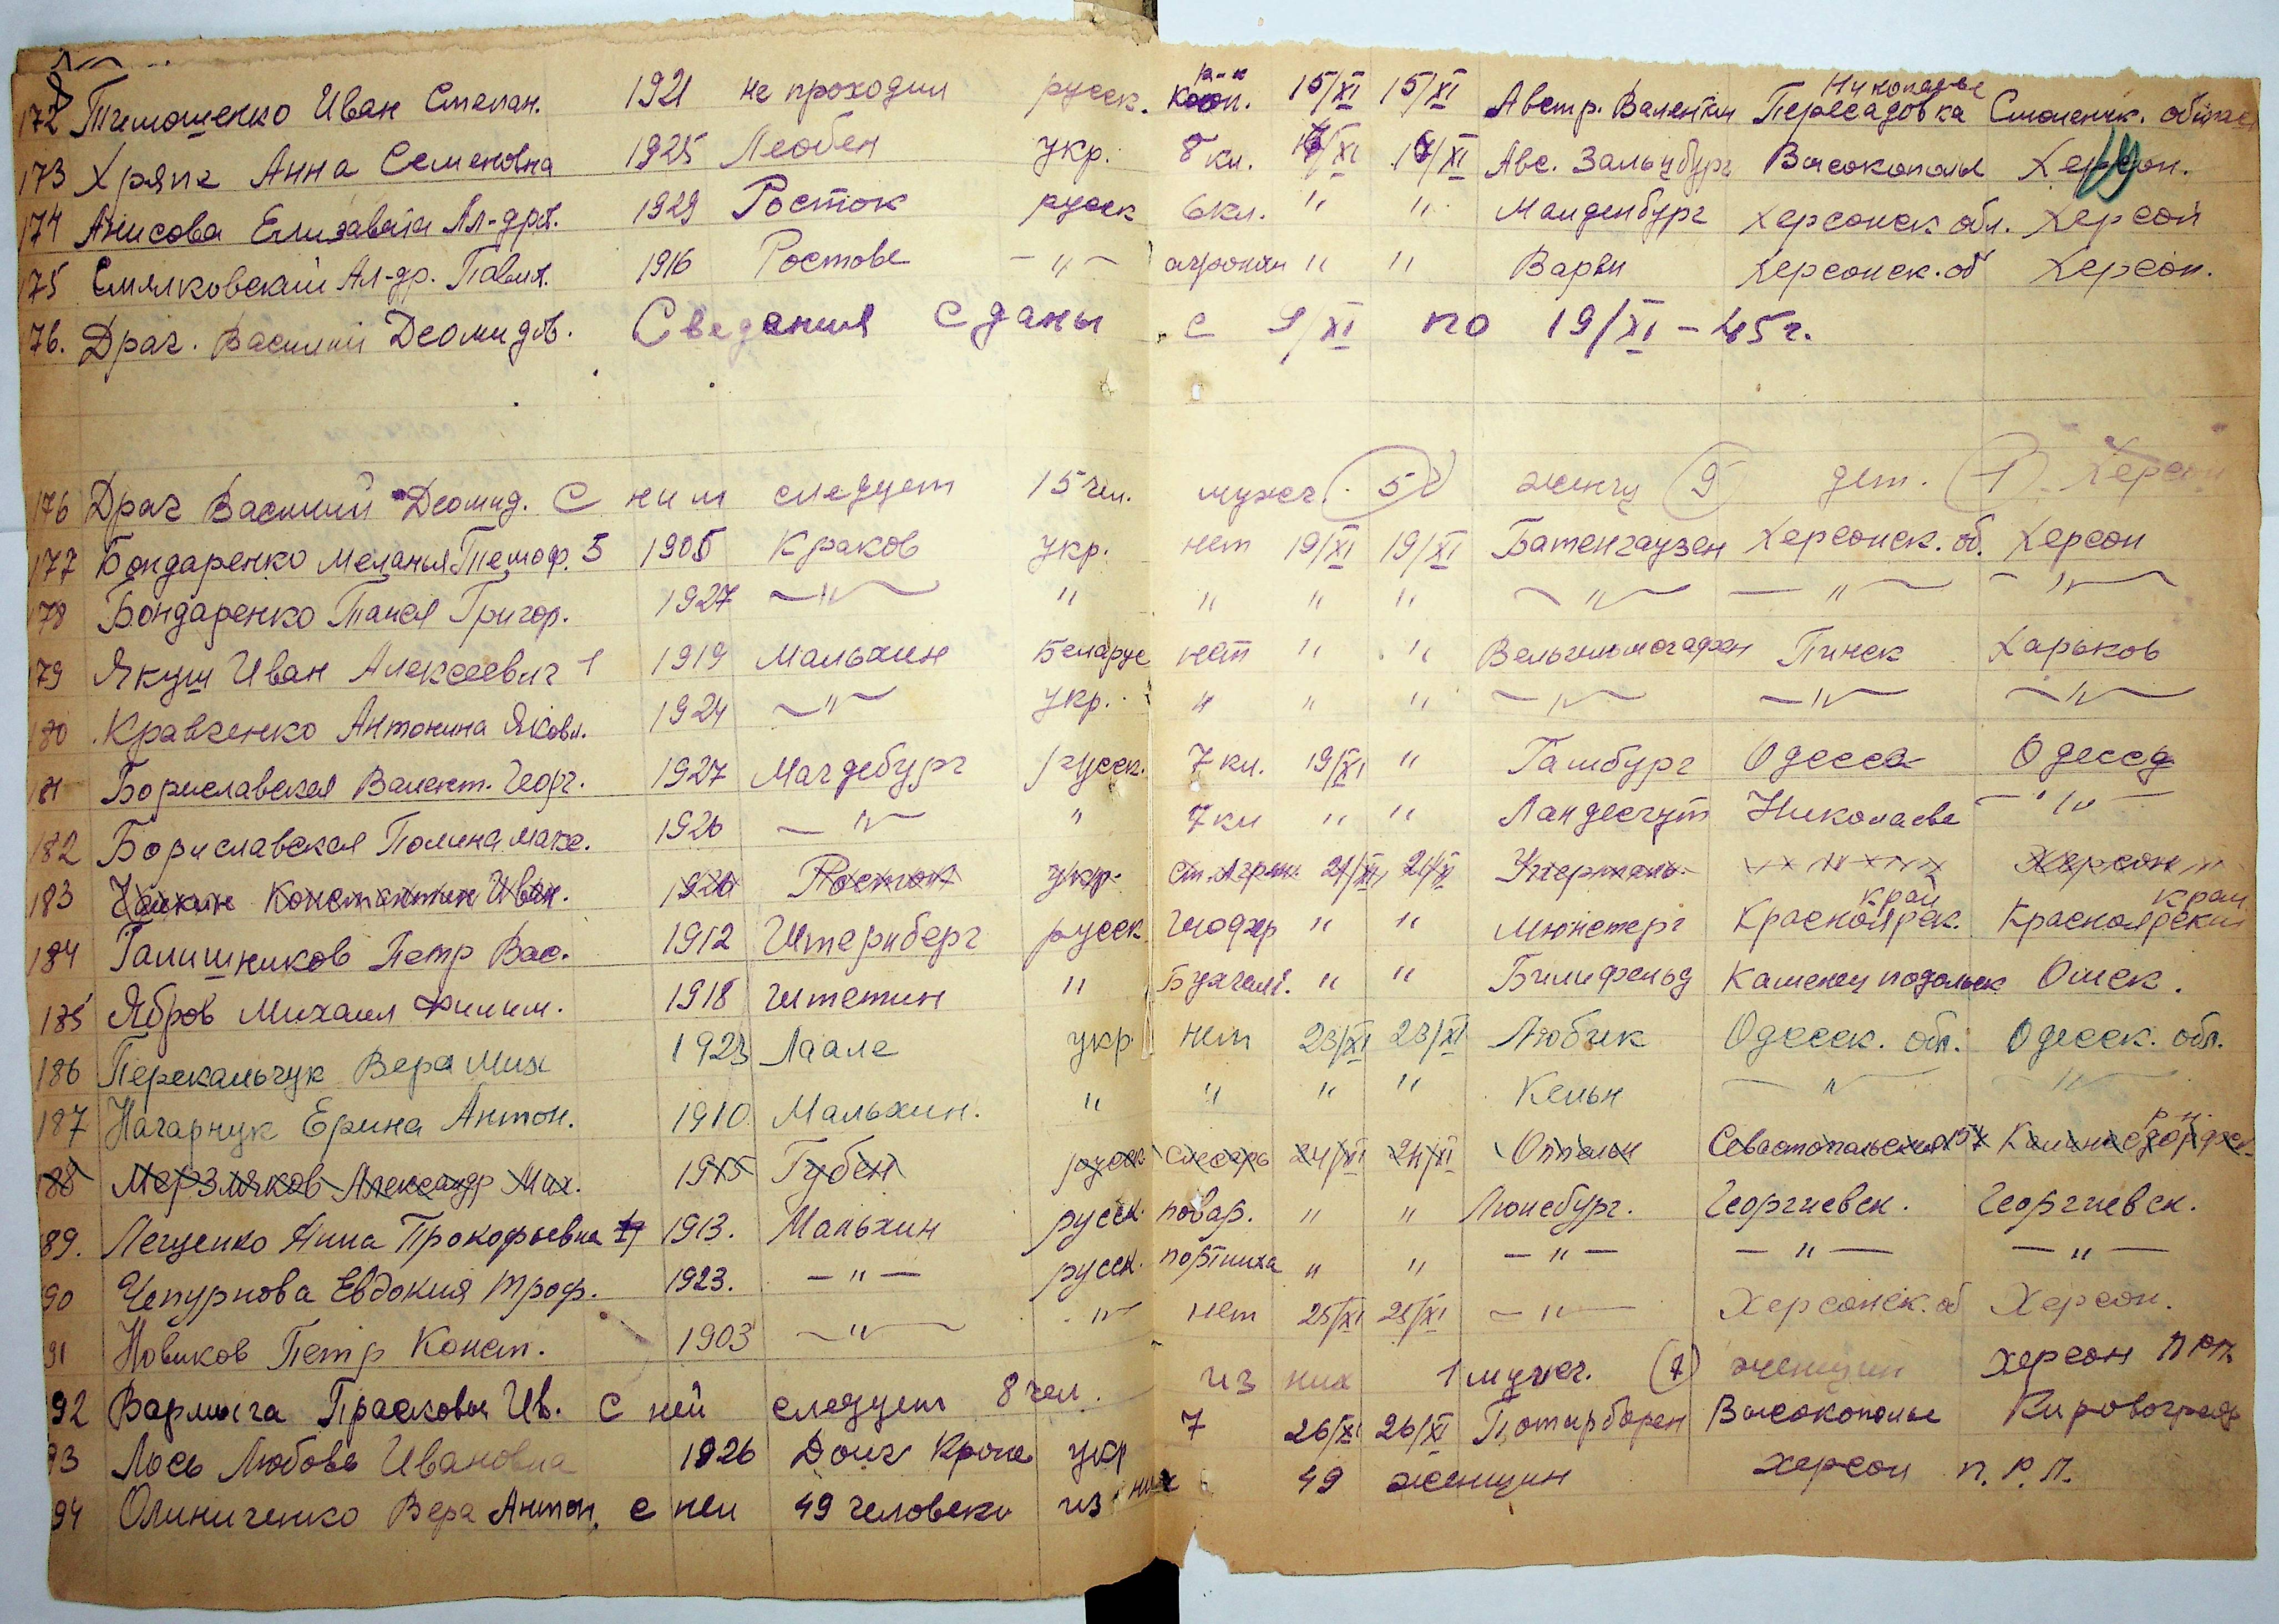 172 Тимошенко Иван Степан. 1921 не проходил русск. 15/XI 15/XI Австр. Валентин Пересадовка Николаевс Смоленск. област
173 Хряпа Анна Семеновна 1925 Леобен укр. 8 кл. 17/XI 17/XI Авс. Зальцбург Высокополье Херсон.
174 Анисова Елизавета Ал-дров. 1929 Росток русск 6 кл. " " Магденбург Херсонск обл. Херсон
175 Смялковский Ал-др. Павл. 1916 Ростове — " — агроном " " Варен Херсонск. об Херсон.
76. Драч. Василий Деомидов. Сведения сданы с 9/XI по 19/XI – 45 г.
176 Драч Василий Деомид. С ним следует 15 чел. мужч. 5 женщ 9 дет. 1 Херсон
177 Бондаренко Меланья Тимоф. 5 1905 Краков укр. нет 19/XI 19/XI Батенгаузен Херсонск. об. Херсон
178 Бондаренко Таися Григор. 1927 — " — " " " " — " — — " — — " —
179 Якуш Иван Алексеевич 1 1919 Мальхин Беларус нет " " Пинск Харьков
180 Кравченко Антонина Яковл. 1924 — " — укр. " " " — " — — " — — " —
181 Бориславская Валент. Георг. 1927 Магдебург русск. 7 кл. 19/XI " Гамбург Одесса Одесса
182 Бориславская Полина Макс. 1926 — " — " 7 кл " " Ландесгут Николаеве — " —
183 Константин Иван. 1926 Росток укр. 21/XI 21/XI Херсон
184 Галишников Петр Вас. 1912 Штернберг русск шофер " " Мюнстерг Красноярск. край Красноярский край
185 Ябров Михаил Филим. 1918 Штетин " Бухгалт. " " Билифельд Каменец подольск Омск.
186 Перекальчук Вера Мих 1923 Лаале укр. нет 23/XI 23/XI Любек Одесск. обл. Одесск. обл.
187 Нагарнук Ерина Антон. 1910 Мальхин. " " " " Кельн — " — — " —
188 Мерзляков Александр Мих. 1915 Губен русск слесарь 24/XI 24/XI Оппельн Севастопольская 157
89. Лещенко Анна Прокофьевна 1913. Мальхин русск. повар. " " Люнебург. Георгиевск. Георгиевск.
90 Чепурнова Евдокия Троф. 1923. — " — русск. портниха " " — " — — " — — " —
91 Новиков Петр Конст. 1903 — " — " нет 25/XI 25/XI — " — Херсонск. об Херсон.
92 Вармыга Прасковья Ив. с ней следует 8 чел. из них 1 мужч. (7) женщин Херсон ПРП
93 Лось Любовь Ивановна 1926 укр 7 26/XI 26/XI Высокополье Кировоград
94 Олиниченко Вера Антон. с ней 49 человек из них 49 женщин Херсон П.Р.П.